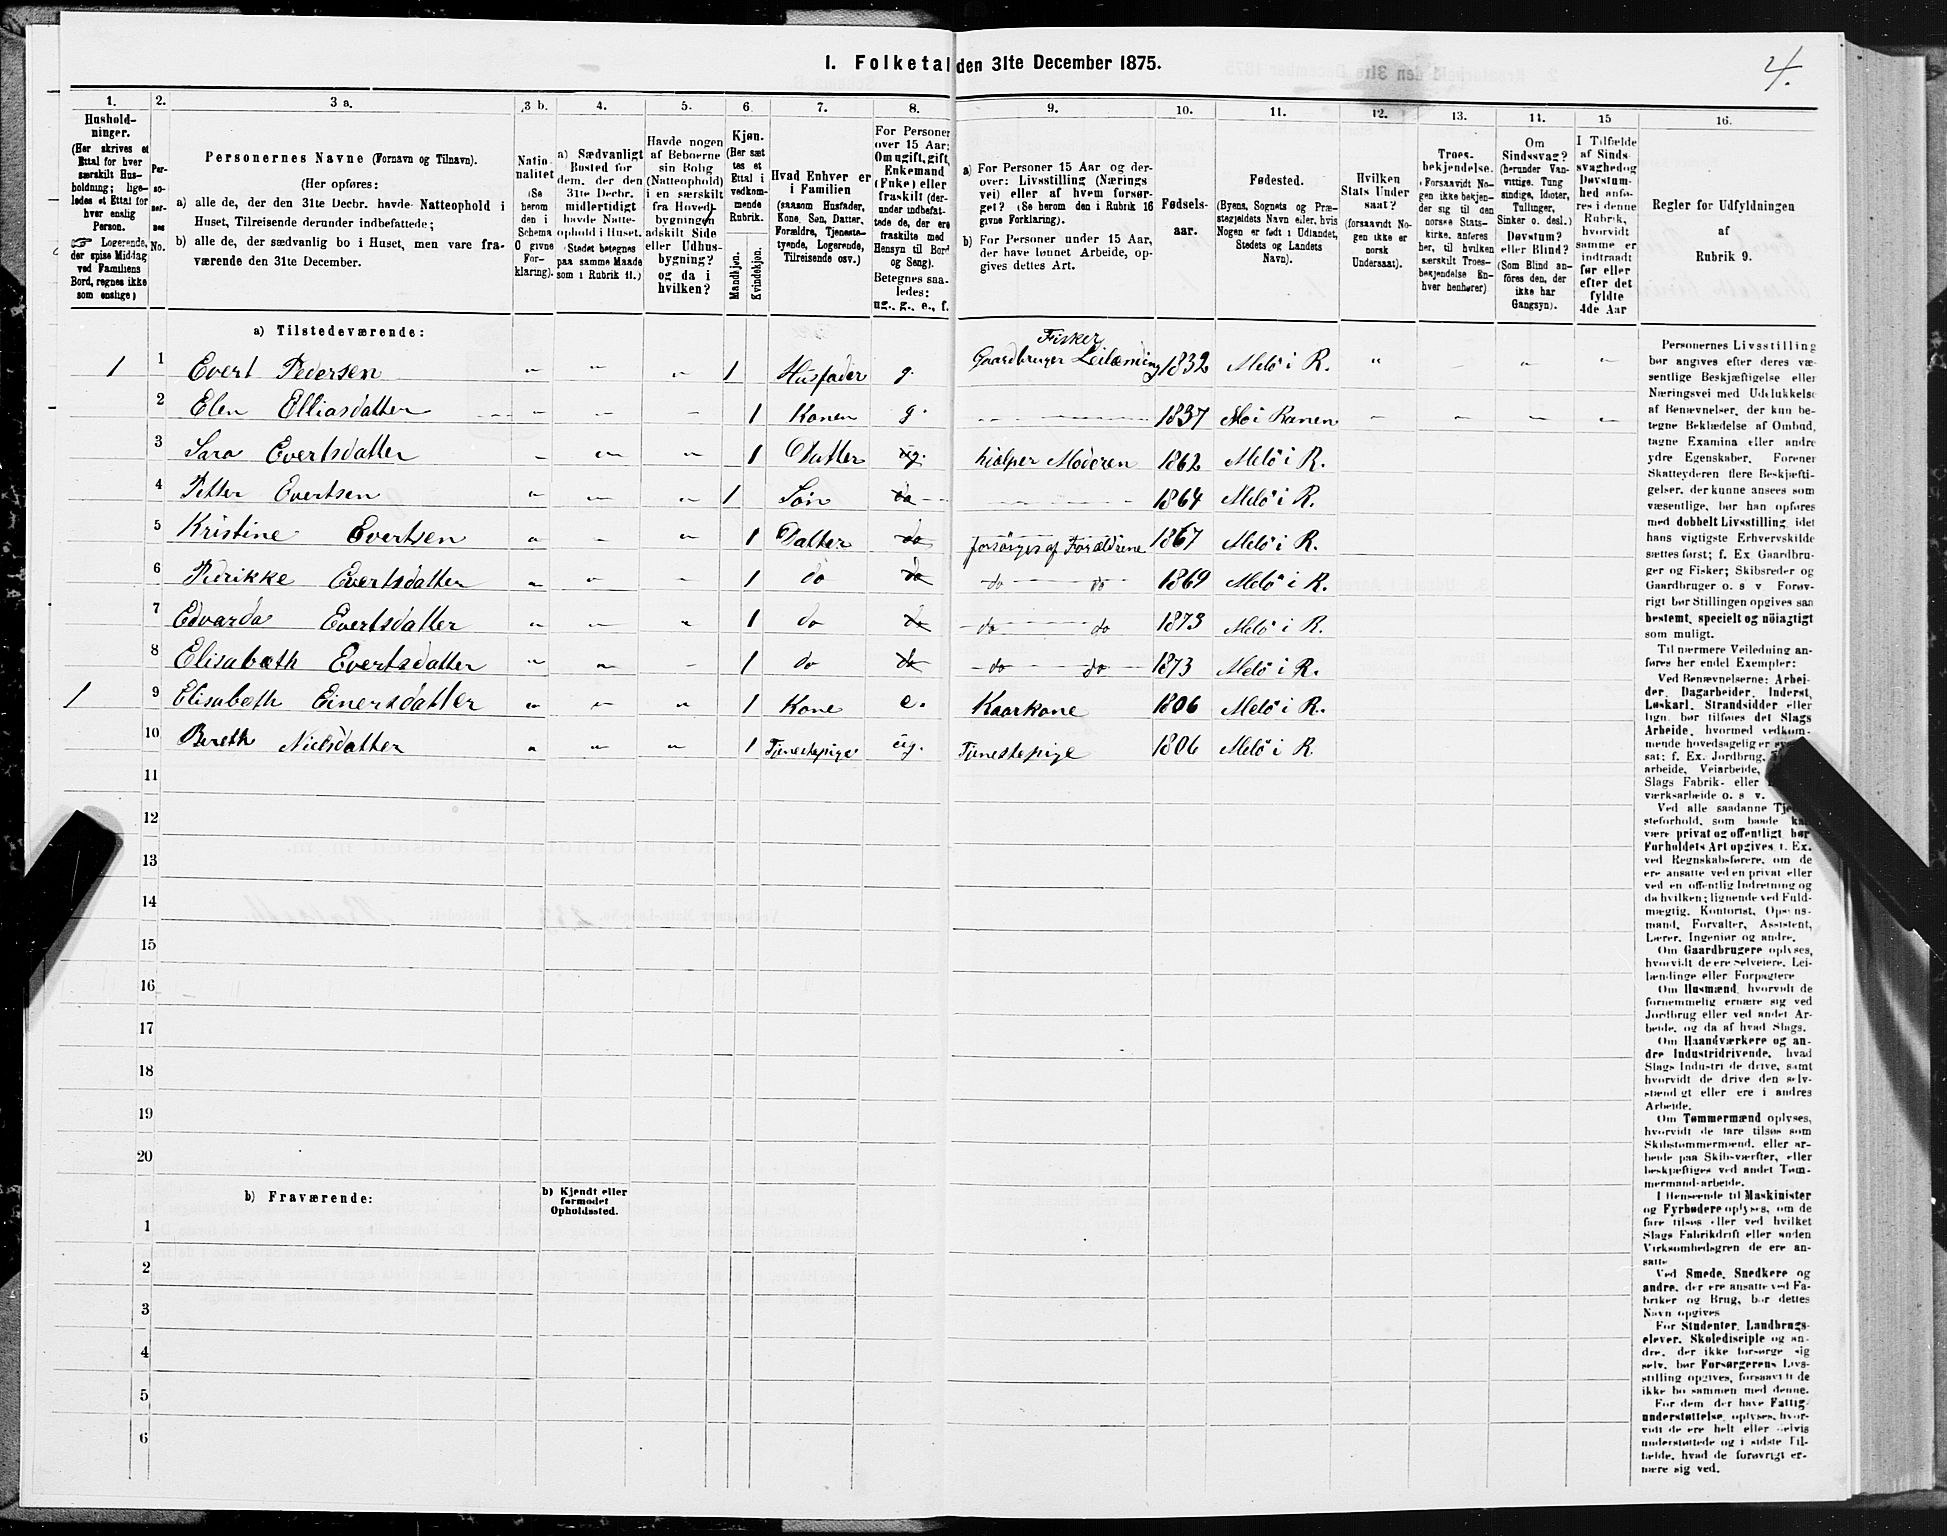 4.
1. Folketal den 31te December 1875.
1. 2. 3 a. 3 b. 4. 5. 6. 7. 8. 9. 10. 11. 12. 13. 14. 15 16.
Hushold-
ninger.
(Her skrives et
Ettal for hver
særskilt Hus-
holdning; lige-
ledes et Ettal for
hver enslig
Person.
☞ Logerende,
der spise Middag
ved Familiens
Bord, regnes ikke
som enslige)
Per-
so-
ner-
nes
No.
Personernes Navne (Fornavn og Tilnavn).
(Her opføres:
a) alle de, der den 31te Decbr. havde Natteophold i
Huset, Tilreisende derunder indbefattede;
b) alle de, der sædvanlig bo i Huset, men vare fra-
værende den 31te December.
Natio-
nalitet
(Se
herom
den i
Schema
O givne
For-
klaring).
a) Sædvanligt
Bosted for
dem, der den
31te Decbr.
midlertidigt
havde Natte-
ophold i Huset.
(Stedet betegnes
paa samme Maade
som i Rubrik 11.)
Havde nogen
af Beboerne
sin Bolig
(Natteophold)
i en særskilt
fra Hoved-
bygningen
adskilt Side
eller Udhus-
bygning?
og da i
hvilken?
Kjøn.
(Her sæt
tes et
Ettal i
vedkom-
mende
Rubrik.
Mandkjøn.
Kvindekjøn.
Hvad Enhver er
i Familien
(saasom Husfader,
Kone, Søn, Datter,
Forældre, Tjeneste-
tyende, Logerende,
Tilreisende osv.)
For Personer
over 15 Aar:
Om ugift, gift,
Enkemand
(Enke) eller
fraskilt (der-
under indbefat-
tede de, der ere
fraskilte med
Hensyn til Bord
og Seng).
Betegnes saa-
ledes:
ug., g., e., f.
a) For Personer 15 Aar og der-
over: Livsstilling (Nærings
vei) eller af hvem forsør-
get? (Se herom den i Rubrik 16
givne Forklaring).
b) For Personer under 15 Aar,
der have lønnet Arbeide, op-
gives dettes Art.
Fødsels-
aar.
Fødested.
(Byens, Sognets og Præ-
stegjeldets Navn eller, hvis
Nogen er født i Udlandet,
Stedets og Landets
Navn).
Hvilken
Stats Under
saat?
(forsaavidt No-
gen ikke er
norsk
Undersaat).
Troes-
bekjendelse.
(Forsaavidt No-
gen ikke bekjen-
der sig til den
norske Stats-
kirke, anføres
her, til hvilken
særskilt Troes-
bekjendelse En-
hver henhører)
Om
Sindssvag?
(herunder Van-
vittige, Tung
sindige, Idioter,
Tullinger,
Sinker o. desl.)
Døvstum?
eller Blind?
(Som Blind an-
føres den, der
ikke har
Gangsyn).
I Tilfælde
af Sinds-
svaghed og
Døvstum-
hed anfø-
res i denne
Rubrik,
hvorvidt
samme er
indtraadt
før eller
efter det
fyldte
4de Aar
Regler for Udfyldningen
af
Rubrik 9.
a) Tilstedeværende:
Fisker
1 1 Evert Pedersen „ „ „ 1 Husfader g. Gaardbruger Leilænding 1832 Melö i R. „ - „ „
2 Elen Elliasdatter - - - 1 Konen g. 1837 Mo i Ranen - - - -
3 Sara Evertsdatter - „ „ 1 Datter ug. hjælper Moderen 1862 Melö i R.
4 Petter Evertsen „ - „ 1 Søn do 1864 Melö i R.
5 Kristine Evertsen „ - „ 1 Datter do forsörges af Forældrene 1867 Melö i R.
6 Pedrikke Evertsdatter „ „ „ 1 do do do do 1869 Melö i R.
7 Edvarda Evertsdatter „ „ „ 1 do do do do 1873 Melö i R.
8 Elisabæth Evertsdatter „ „ - 1 do do do do 1873 Melö i R.
1 9 Elisabeth Einersdatter „ „ „ 1 Kone e. Kaarkone 1806 Melö i R.
10 Bereth Nielsdatter „ „ „ 1 Tjenestepige ug. Tjenestepige 1806 Melö i R.
11
12
13
14
15
16
17
18
19
20
b) Fraværende:
b) Kjendt eller
formodet
Opholdssted.
1
2
3
4
5
6
Personernes Livsstilling
bør angives efter deres væ-
sentlige Beskjæftigelse eller
Næringsvei med Udelukkelse
af Benævnelser, der kun be-
tegne Beklædelse af Ombud,
tagne Examina eller andre
ydre Egenskaber. Forener
Skatteyderen flere Beskjæfti-
gelser, der kunne ansees som
væsentlige, bør han opføres
med dobbelt Livsstilling, idet
hans vigtigste Erhvervskilde
sættes først; f. Ex Gaardbru-
ger og Fisker; Skibsreder og
Gaardbruger o. s v Forøv-
rigt bør Stillingen opgives saa
bestemt, specielt og nøiagtigt
som muligt.
Til nærmere Veiledning an-
føres her endel Exempler:
Ved Benævnelserne: Arbei-
der, Dagarbeider, Inderst,
Løskarl, Strandsidder eller
lign. bør tilføies det Slags
Arbeide, hvormed vedkom-
mende hovedsagelig er
sat; f. Ex. Jordbrug,
arbeide, Veiarbeide,
Slags Fabrik- eller
værksarbeide o. s v.
Ved alle saadanne
steforhold, som baade
være privat og offentligt, bør
Forholdets Art opgives, f. Ex.
ved Regnskabsførere, om de
ere ansatte ved en privat eller
ved en offentlig Indretning og
da hvilken; lignende ved Fuld-
mægtig, Kontorist, Opsyns-
mand, Forvalter, Assistent,
Lærer, Ingeniør og andre.
Om Gaardbrugere oplyses,
hvorvidt de ere Selveiere, Lei-
lændinge eller Forpagtere
Om Husmænd, hvorvidt de
fornemmelig ernære sig ved
Jordbrug eller ved andet Ar-
beide, og da af hvad Slags.
Om Haandværkere og an-
dre Industridrivende, hvad
Slags Industri de drive, samt
hvorvidt de drive den selv-
stændigt eller ere i andres
Arbeide.
Om Tømmermænd oplyses,
hvorvidt de fare tilsøs som
Skibstømmermænd, eller ar-
beide paa Skibsværfter, eller
beskjæftiges ved andet Tøm-
mermandarbeide.
I Henseende til Maskinister
og Fyrbødere oplyses, om de
fare tilsøs eller ved hvilket
Slags Fabrikdrift eller anden
Virksomhedsgren de ere an-
satte
Ved Smede, Snedkere og
andre, der ere ansatte ved Fa-
briker og Brug, bør dettes
Navn opgives
For Studenter, Landbrugs-
elever, Skoledisciple og an-
dre, der ikke forsørge sig
selv, bør Forsørgerens Livs-
stilling opgives, forsaavidt de
ikke bo sammen med denne.
For dem, der have Fattig-
understøttelse, oplyses, hvor-
vidt de ere helt eller delvis
understøttede og i sidste Til-
fælde, hvad de forøvrigt er-
nære sig ved.